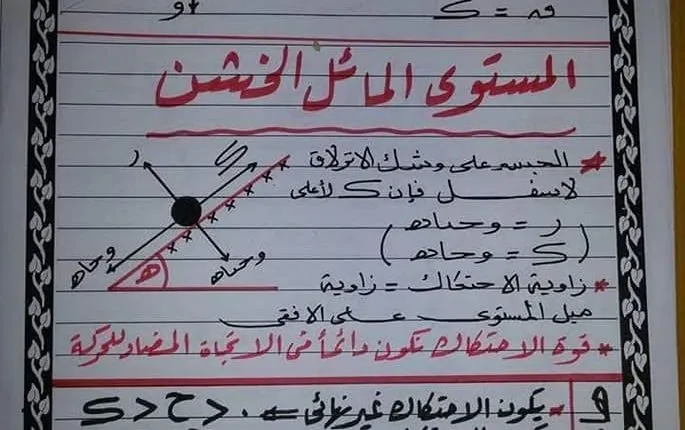 و = ك
المستوى المائل الخشن
* الجسم على وشك الانزلاق
لاسفل فإن ك لأعلى
ر = و حتاهـ
( ك = و حاهـ )
* زاوية الاحتكاك = زاوية
ميل المستوى على الافقى
* قوة الاحتكاك تكون دائماً فى الاتجاة المضاد للحركة
ر
ك
و حاهـ
هـ
و حتاهـ
* يكون الاحتكاك غير نهائى ← ٠ < ح < ك